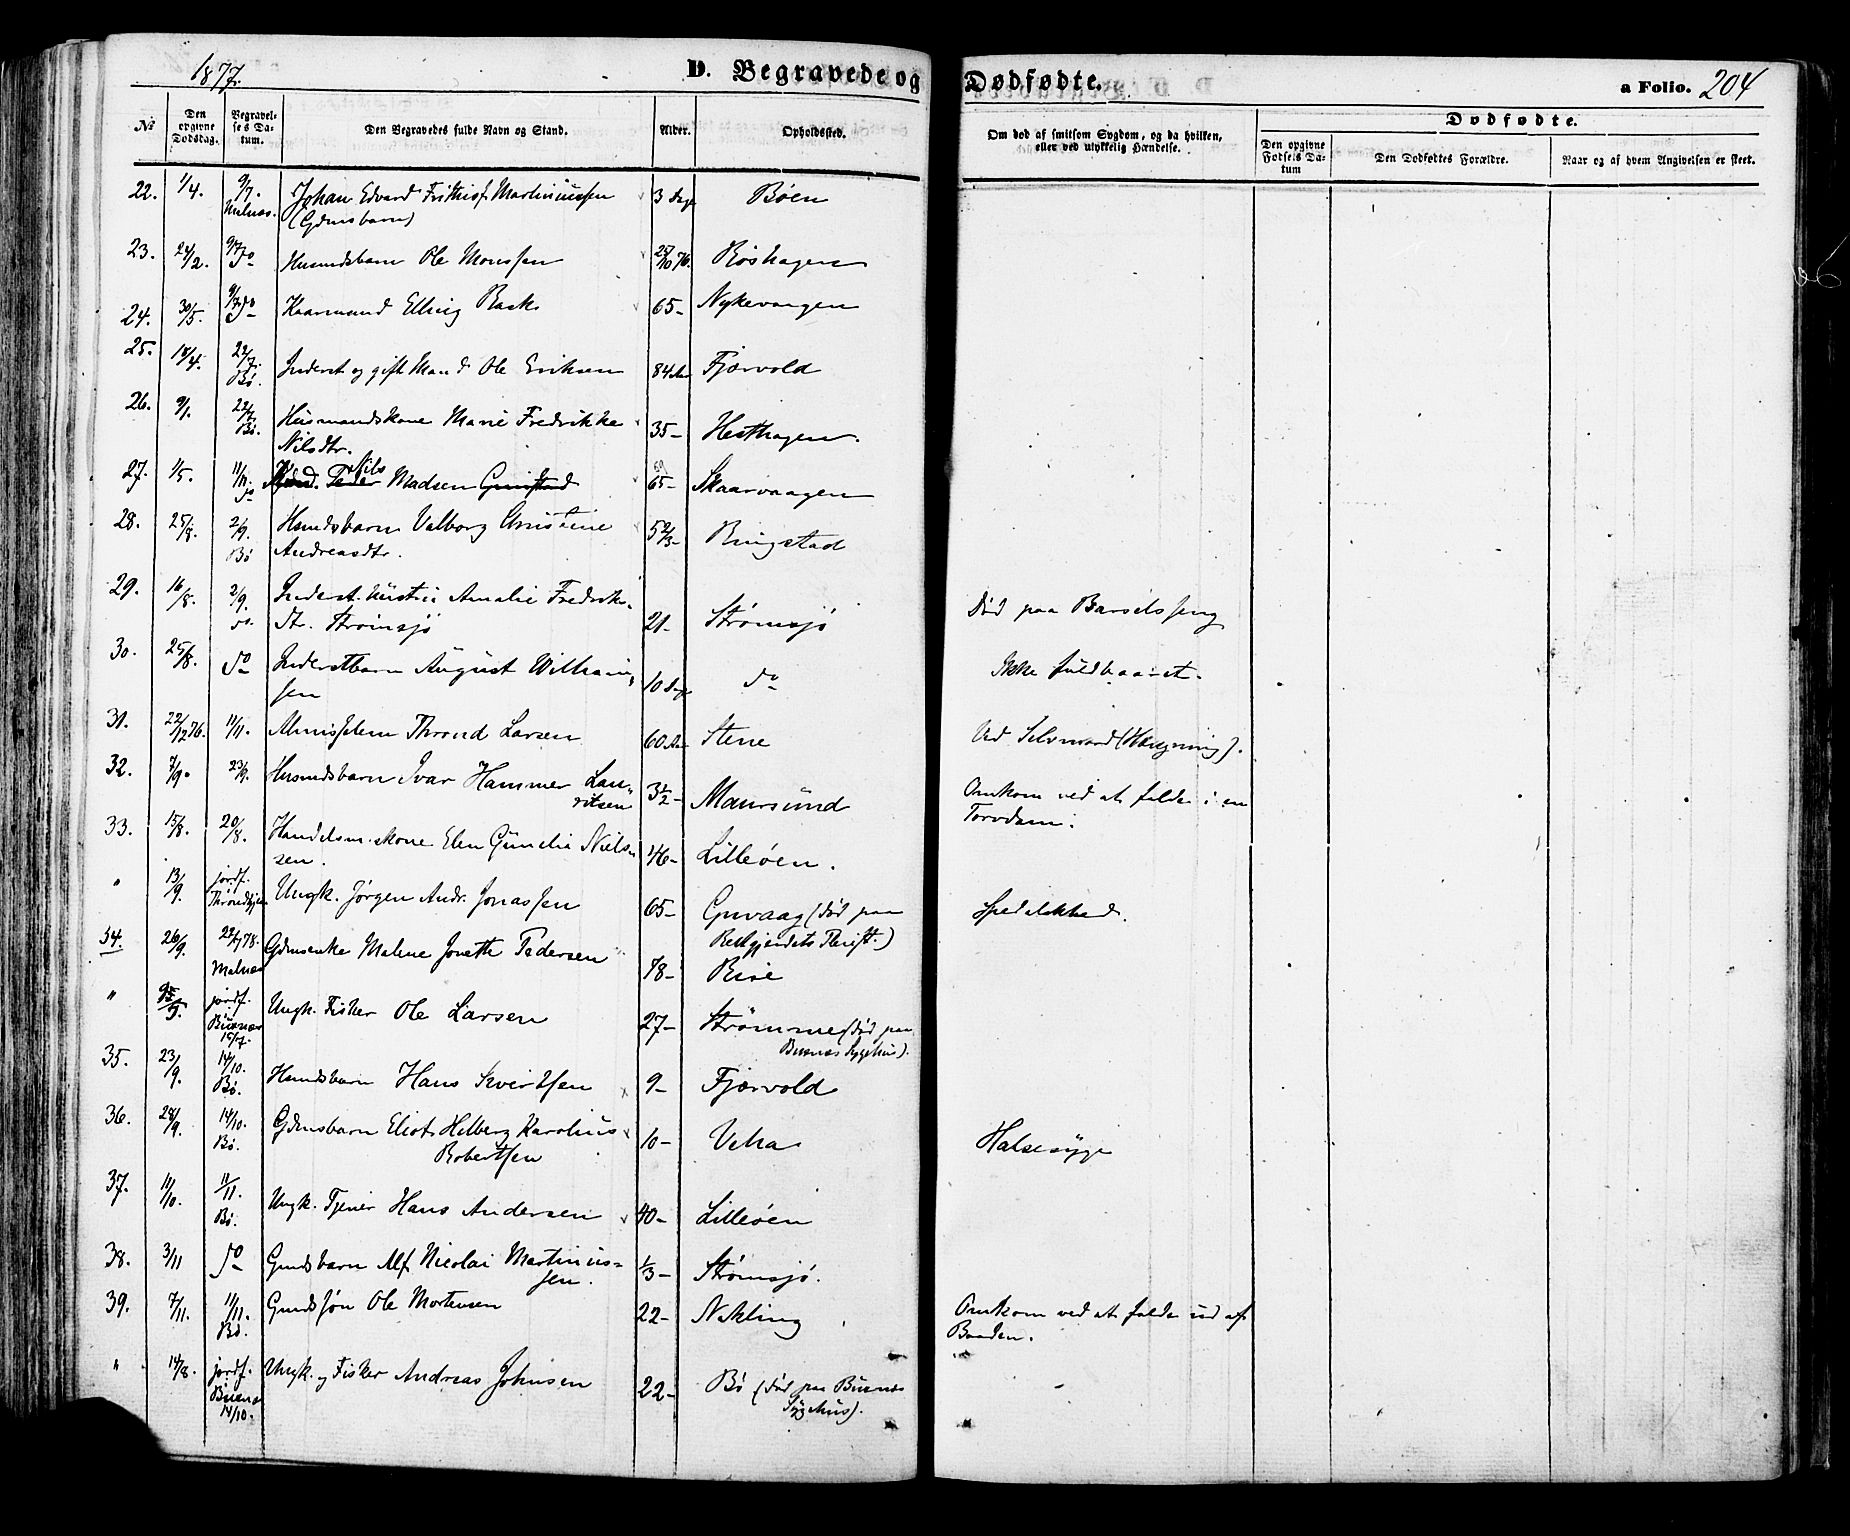 1877.
D. Begravede og Dødfødte.
a Folio. 204
No
Den opgivne Dødsdag.
Begravelses Datum.
Den Begravedes fulde Navn og Stand.
Alder.
Opholdssted.
Om død af smitsom Sygdom, og da hvilken, eller ved ulykkelig Hændelse.
Dødfødte.
Den opgivne Fødsels Datum
Den Dødfødtes Forældre.
Naar og af hvem Angivelsen er skeet.
22. 1/4. 9/7. Malnæs. Johan Edvard Frithiof Martiniussen 3 dage Bøen
(Gdmsbarn)
23. 24/2. 9/7 do Husmdsbarn Ole Monssen 76. Røshagen
24. 30/5. 9/7 do Kaarmand Elling Bask 65- Nykevaagen
25. 18/4. 22/7. Bø. Inderst og gift Mand Ole Eriksen 84 Aar Fjærvold
26. 9/1. 22/7. Bø. Husmandskone Marie Fredrikke 35- Hesthagen.
Nilsdtr.
27. 1/5. 11/11. do Peder Nils Madsen 65- Skaarvaagen
28. 25/8. 2/9. Bø Husmdsbarn Valborg Christine 5 2/3- Ringstad
Andreasdtr.
29. 16/8. 2/9. do. Inderst. Hustru Amalie Fredriks-
dtr. Strømsjø 21- Strømsjø Død paa Barselsseng
30. 25/8. do Inderstbarn August Wilhelm-
sen 10 dage do Ikke fuldbaaret.
31. 22/12 76. 11/11. Almisselem Thrond Larsen 60 Aar Stene Ved Selvmord (Hængning).
32. 7/9. 23/9. Husmdsbarn Ivar Hammer Lau-
ritsen 3 1/2- Maursund Omkom ved at falde i en
Torvdam.
33. 15/8. 20/8. Handelsm. skone Elen Gunelie Niels-
sen. 46- Lilleøen.
" 13/9. jordf. Throndhjem Ungk. Jørgen Andr. Jonassen 65- Guvaag (død paa Spedalskhed.
34. 26/9. 78. Malnæs Gdmsenke Malene Jonette Pedersen 78- Rise
" jordf. i Buxnæs 15/7. Ungk. Fisker Ole Larsen 27- Strømme (død paa
Buxnæs Sygehus).
35. 23/9. 14/10. Bø. Husmdsbarn Hans Sivertsen 9- Fjærvold
36. 28/9. 14/10. Bø. Gdmsbarn Eliot Helberg Karolius 10- Veha Halssyge
Robertsen
37. 11/10. 11/11. Bø. Ungk. Tjener Hans Andersen 40- Lilleøen
38. 3/11 do Gmdsbarn Alf Nicolai Martinius-
sen. 1/3- Strømsjø.
39. 7/11. 11/11. Bø. Gmdssøn Ole Mortensen 22- Nykling Omkom ved at falde ud af
Baaden.
" 14/8. jordf. i Buxnæs 14/10. Ungk. og Fisker Andreas Johnsen 22- Bø (død paa Buxnæs
Sygehus).